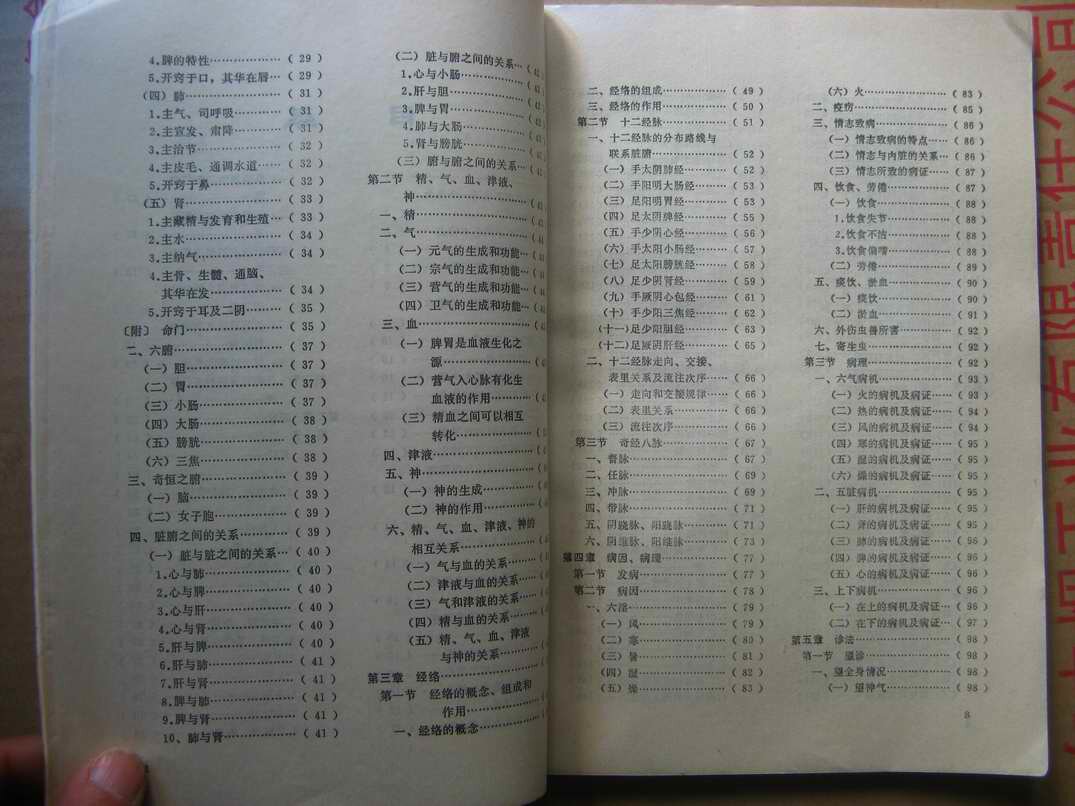 4.脾的特性………………( 29 )
5.开窍于口，其华在唇…( 29 )
(四) 肺………………( 31 )
1.主气、司呼吸…………( 31 )
2.主宣发、肃降…………( 31 )
3.主治节………………( 32 )
4.主皮毛、通调水道……( 32 )
5.开窍于鼻………………( 32 )
(五) 肾………………( 33 )
1.主藏精与发育和生殖…( 33 )
2.主水…………………( 34 )
3.主纳气………………( 34 )
4.主骨、生髓、通脑、
其华在发………………( 34 )
5.开窍于耳及二阴………( 35 )
〔附〕 命门………………( 35 )
二、六腑…………………( 37 )
(一) 胆………………( 37 )
(二) 胃………………( 37 )
(三) 小肠……………( 37 )
(四) 大肠……………( 38 )
(五) 膀胱……………( 38 )
(六) 三焦……………( 38 )
三、奇恒之腑……………( 39 )
(一) 脑………………( 39 )
(二) 女子胞…………( 39 )
四、脏腑之间的关系……( 39 )
(一) 脏与脏之间的关系…( 40 )
1.心与肺………………( 40 )
2.心与脾………………( 40 )
3.心与肝………………( 40 )
4.心与肾………………( 40 )
5.肝与脾………………( 40 )
6.肝与肺………………( 41 )
7.肝与肾………………( 41 )
8.脾与肺………………( 41 )
9.脾与肾………………( 41 )
10、肺与肾………………( 41 )
(二) 脏与腑之间的关系…
1.心与小肠………………
2.肝与胆…………………
3.脾与胃…………………
4.肺与大肠………………
5.肾与膀胱………………
(三) 腑与腑之间的关系…
第二节 精、气、血、津液、
神………………………
一、精……………………
二、气……………………
(一) 元气的生成和功能…
(二) 宗气的生成和功能…
(三) 营气的生成和功能…
(四) 卫气的生成和功能…
三、血……………………
(一) 脾胃是血液生化之
源………………………
(二) 营气入心脉有化生
血液的作用……………
(三) 精血之间可以相互
转化……………………
四、津液…………………
五、神……………………
(一) 神的生成…………
(二) 神的作用…………
六、精、气、血、津液、神的
相互关系………………
(一) 气与血的关系……
(二) 津液与血的关系…
(三) 气和津液的关系…
(四) 精与血的关系……
(五) 精、气、血、津液
与神的关系……………
第三章 经络……………
第一节 经络的概念、组成和
作用……………………
一、经络的概念…………
二、经络的组成…………( 49 )
三、经络的作用…………( 50 )
第二节 十二经脉………( 51 )
一、十二经脉的分布路线与
联系脏腑………………( 52 )
(一) 手太阴肺经………( 52 )
(二) 手阳明大肠经……( 53 )
(三) 足阳明胃经………( 53 )
(四) 足太阴脾经………( 55 )
(五) 手少阴心经………( 56 )
(六) 手太阳小肠经……( 57 )
(七) 足太阳膀胱经……( 58 )
(八) 足少阴肾经………( 59 )
(九) 手厥阴心包经……( 61 )
(十) 手少阳三焦经……( 62 )
(十一)足少阳胆经………( 63 )
(十二)足厥阴肝经………( 65 )
二、十二经脉走向、交接、
表里关系及流注次序……( 66 )
(一) 走向和交接规律……( 66 )
(二) 表里关系…………( 66 )
(三) 流注次序…………( 66 )
第三节 奇经八脉………( 67 )
一、督脉…………………( 67 )
二、任脉…………………( 69 )
三、冲脉…………………( 69 )
四、带脉…………………( 71 )
五、阴跷脉、阳跷脉……( 71 )
六、阴维脉、阳维脉……( 73 )
第四章 病因、病理……( 77 )
第一节 发病……………( 77 )
第二节 病因……………( 78 )
一、六淫…………………( 79 )
(一) 风………………( 79 )
(二) 寒………………( 80 )
(三) 暑………………( 81 )
(四) 湿………………( 82 )
(五) 燥………………( 83 )
(六) 火………………( 83 )
二、疫疠…………………( 85 )
三、情志致病……………( 86 )
(一) 情志致病的特点……( 86 )
(二) 情志与内脏的关系…( 86 )
(三) 情志所致的病证……( 87 )
四、饮食、劳倦…………( 87 )
(一) 饮食……………( 88 )
1.饮食失节……………( 88 )
2.饮食不洁……………( 88 )
3.饮食偏嗜……………( 88 )
(二) 劳倦……………( 89 )
五、痰饮、淤血…………( 90 )
(一) 痰饮……………( 90 )
(二) 淤血……………( 91 )
六、外伤虫兽所害………( 92 )
七、寄生虫………………( 92 )
第三节 病理……………( 92 )
一、六气病机……………( 93 )
(一) 火的病机及病证……( 93 )
(二) 热的病机及病证……( 94 )
(三) 风的病机及病证……( 94 )
(四) 寒的病机及病证……( 95 )
(五) 湿的病机及病证……( 95 )
(六) 燥的病机及病证……( 95 )
二、五脏病机……………( 95 )
(一) 肝的病机及病证……( 95 )
(二) 肾的病机及病证……( 95 )
(三) 肺的病机及病证……( 95 )
(四) 脾的病机及病证……( 96 )
(五) 心的病机及病证……( 96 )
三、上下病机……………( 96 )
(一) 在上的病机及病证…( 96 )
(二) 在下的病机及病证…( 97 )
第五章 诊法……………( 98 )
第一节 望诊……………( 98 )
一、望全身情况…………( 98 )
(一) 望神气…………( 98 )
8
有限责任公司